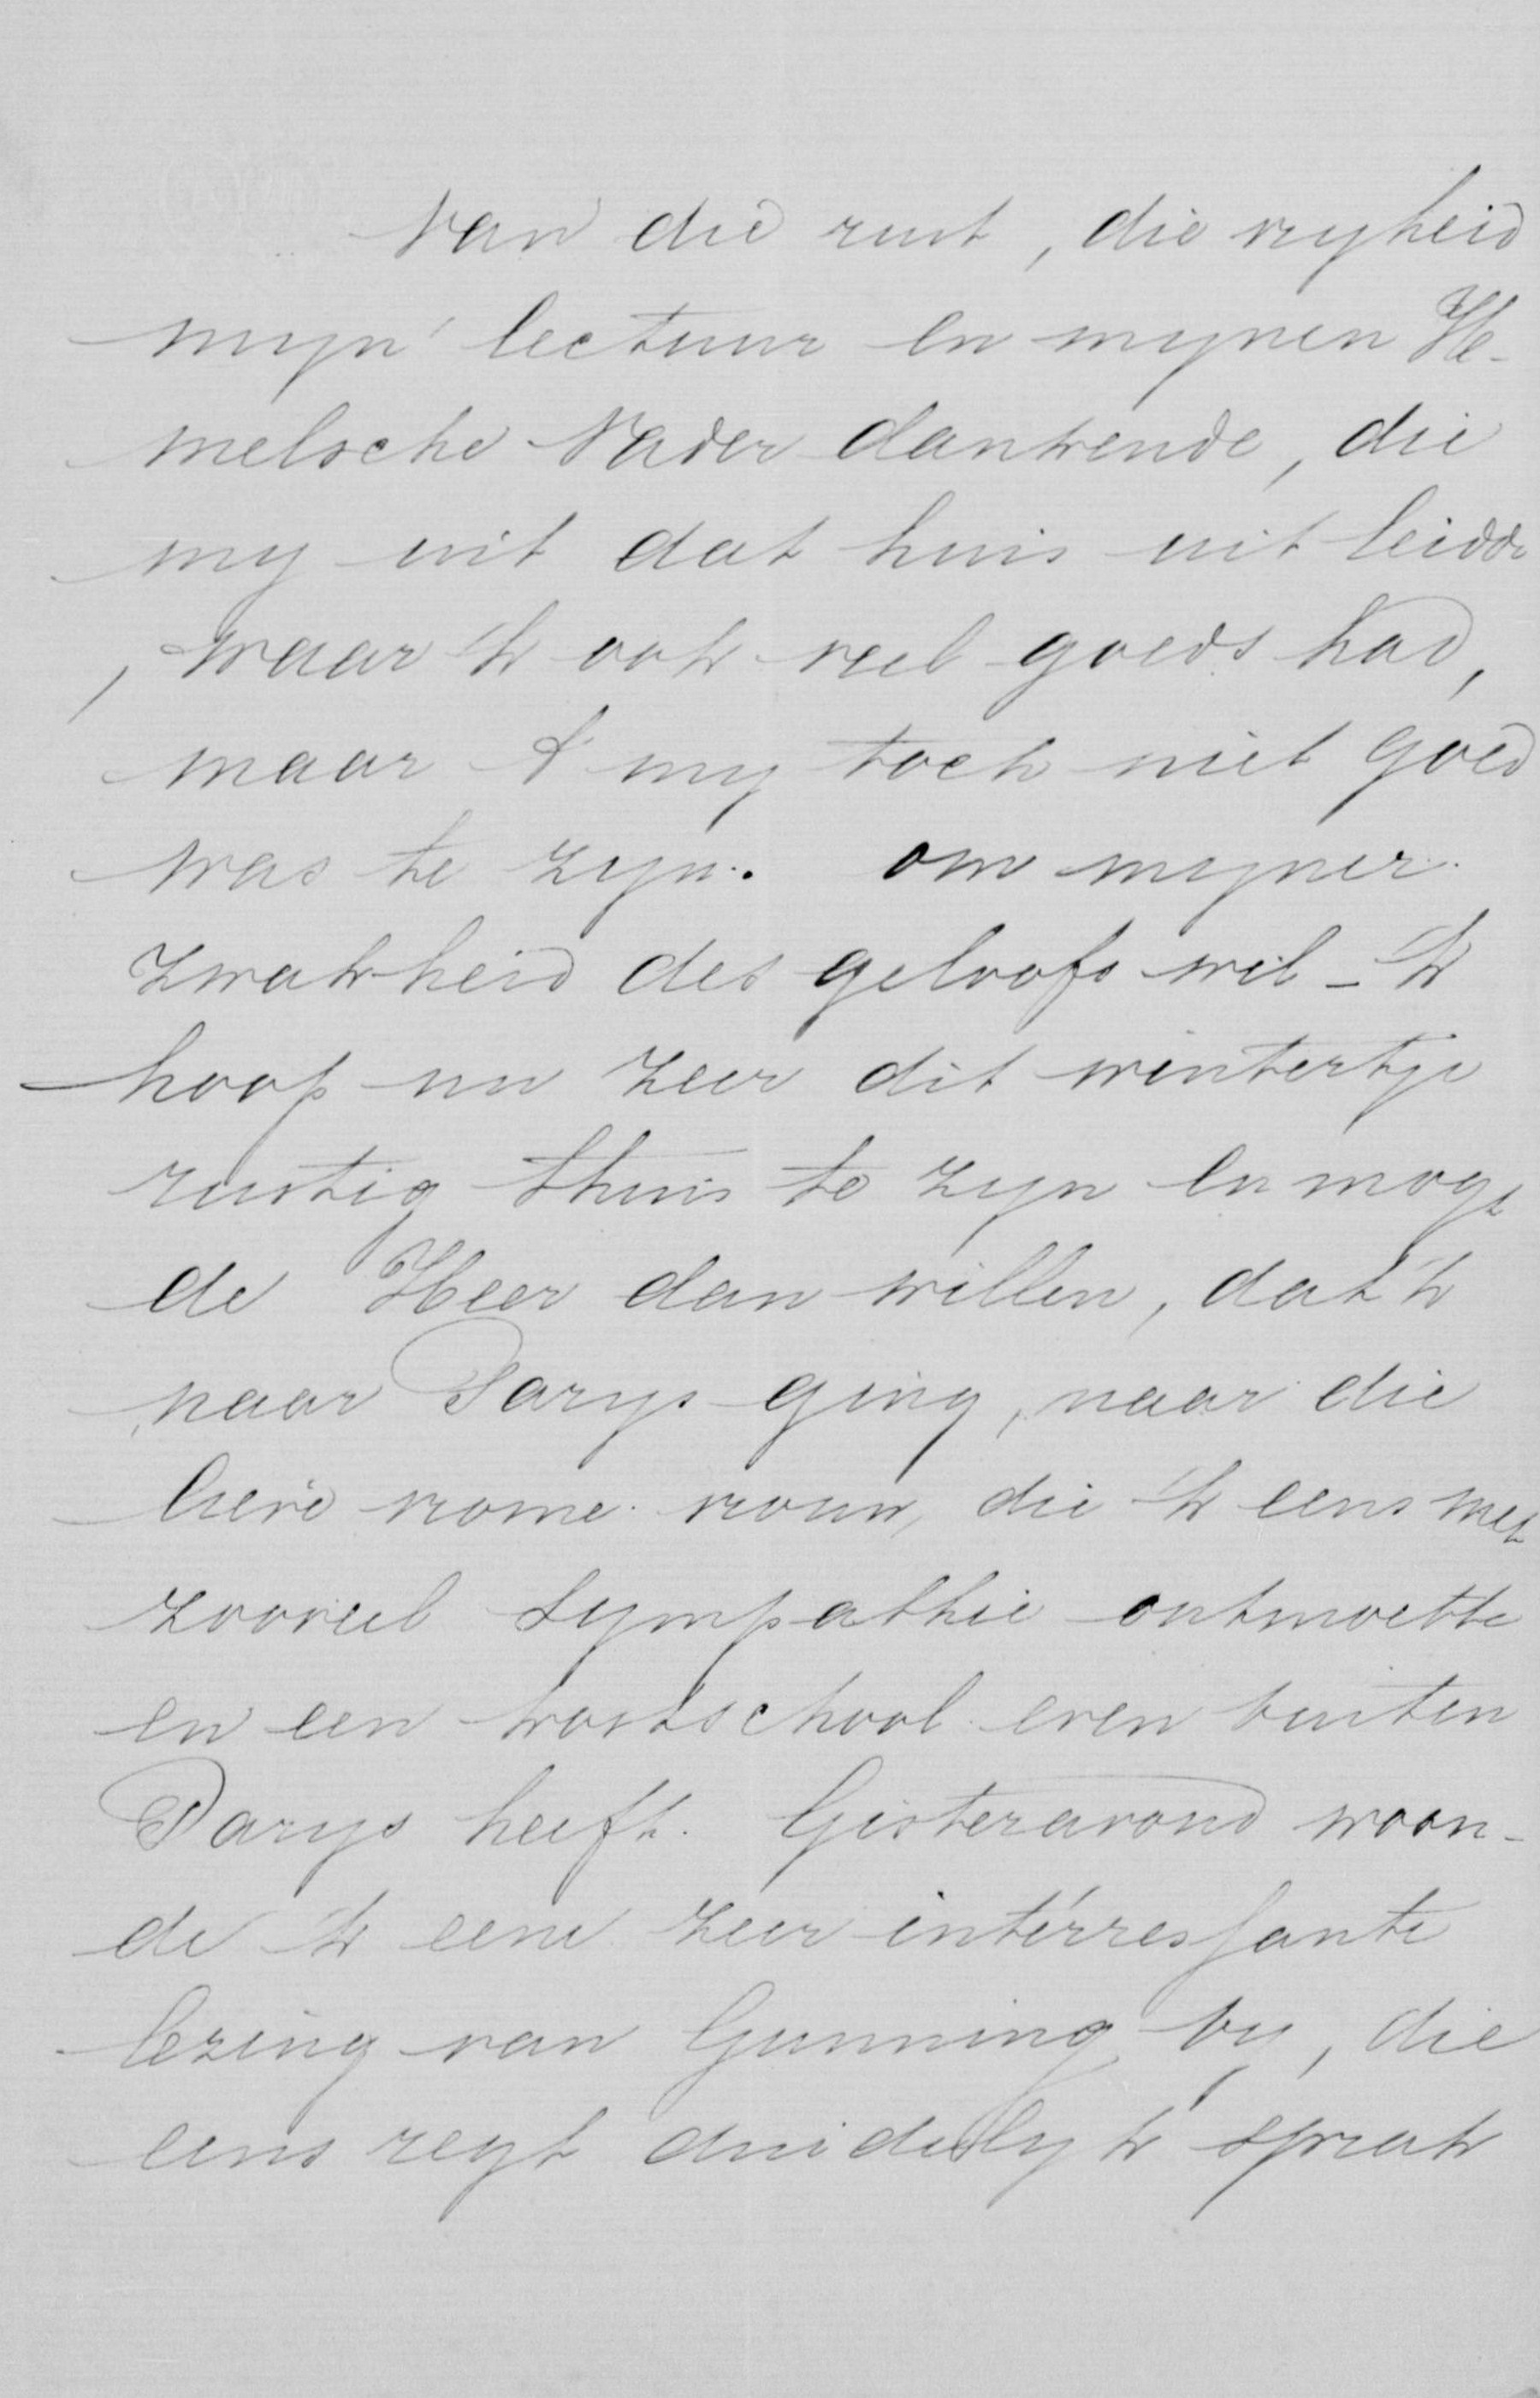 van die rust, die vryheid
myn lectuur en mynen He-
melsche Vader dankende, die
my uit dat huis uit leidde
, waar 'k ook veel goeds had,
maar 't my toch niet goed
was te zyn. om myner
zwakheid des geloofs wil - 'k
hoop nu zeer dit wintertje
rustig thuis te zyn en moge
de Heer dan willen, dat 'k
naar Parys ging, naar die
lieve vrome vrouw, die 'k eens met
zooveel sympathie ontmoette
en een kostschool even buiten
Parys heeft. Gisteravond woon-
de 'k eene zeer intérressante
lezing van Gunning by, die
eens regt duidelyk sprak